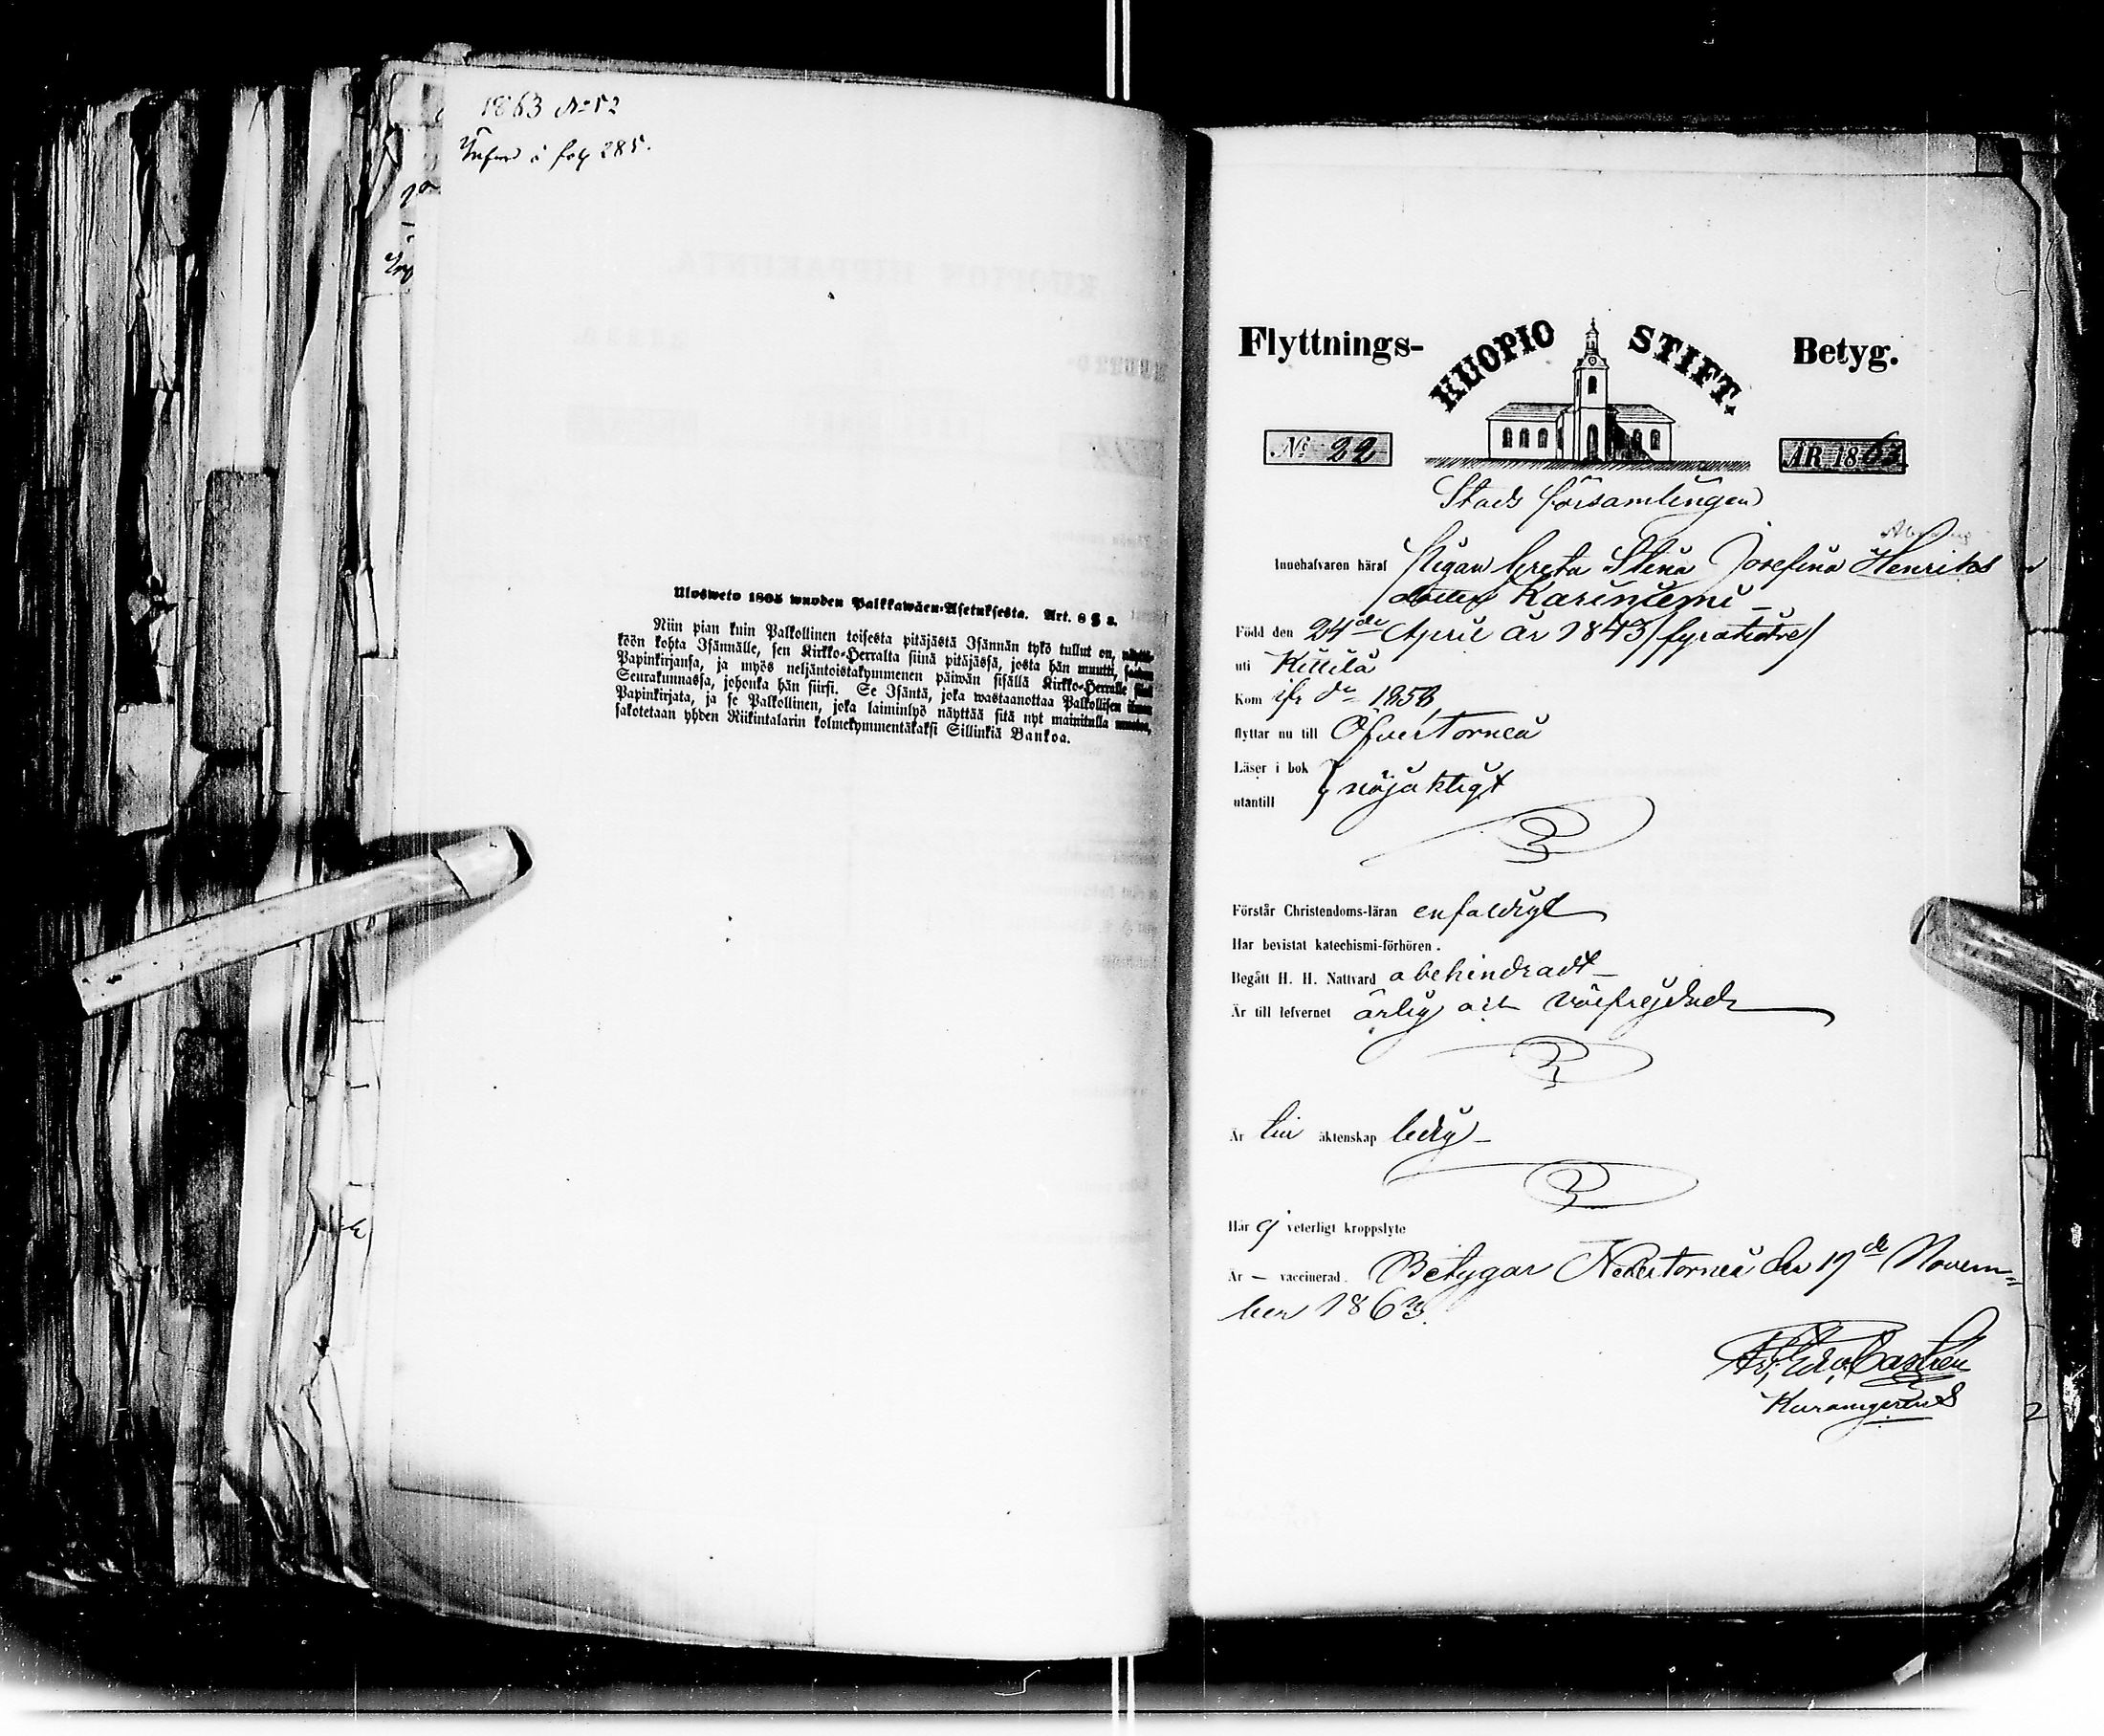 1863 No 52
Införd å pag 285.
Ulosweto 1805 wuoden Palkkawäen-Asetuksesta. Art. 8 § 2.
Niin pian kuin Palkollinen toisesta pitäjästä Isännän tykö tullut on, näyttä-
köön kohta Isännälle, sen Kirkko-Herralta siinä pitäjässä, josta hän muutti, saadun
Papinkirjansa, ja myös neljäntoistakymmenen päiwän sisällä Kirkko-Herralle siinä
Seurakunnassa, johonka hän siirsi. Se Isäntä, joka wastaanottaa Palkollisen ilman
Papinkirjata, ja se Palkollinen, joka laiminlyö näyttää sitä nyt mainitulla muotoa,
sakotetaan yhden Riikintalarin kolmekymmentäkaksi Sillinkiä Bankoa.
Flyttnings- KUOPIO STIFT. Betyg.
No 22 ÅR 1863
Stads församlingen
Innehafvaren häraf Pigan Greta Stina Josefina Henriks
dotter Kariniemi
Född den 24de April år 1843 /fyratiotre/
uti Kittilä
Kom ifr do 1858,
flyttar nu till Öfvertorneå
Läser i bok } nöjaktigt
utantill
Förstår Christendoms-läran enfaldigt
Har bevistat katechismi-förhören.
Begått H. H. Nattvard obehindradt
Är till lefvernet ärlig och välfrejdad
Är till äktenskap ledig
Har ej veterligt kroppslyte
Är – vaccinerad. Betygar Nedertorneå den 17de Novem-
ber 1863.
Castrén